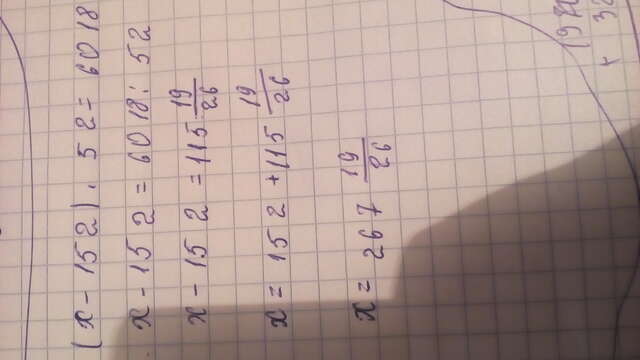 (x - 152) · 52 = 6018
x - 152 = 6018 : 52
x - 152 = 115 19/26
x = 152 + 115 19/26
x = 267 19/26